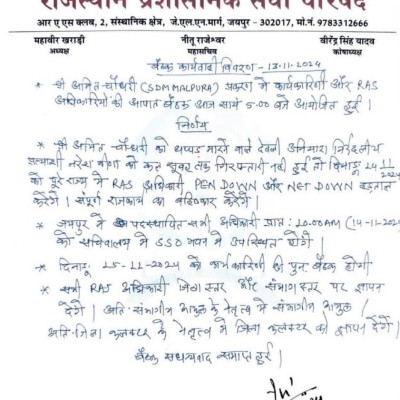 राजस्थान प्रशासनिक सेवा परिषद
आर ए एस क्लब, 2, संस्थानिक क्षेत्र, जे.एल.एन.मार्ग, जयपुर - 302017, मो.नं. 9783312666
महावीर खराड़ी नीतू राजेश्वर वीरेन्द्र सिंह यादव
अध्यक्ष महासचिव कोषाध्यक्ष
बैठक कार्यवाही विवरण - 13-11-2024
* श्री अमित चौधरी (SDM MALPURA) प्रकरण में कार्यकारिणी और RAS
अधिकारियों की आपात बैठक आज सायं 5.00 बजे आयोजित हुई।
निर्णय
* श्री अमित चौधरी को थप्पड़ मारने वाले देवली उनियारा निर्दलीय
प्रत्याशी नरेश मीणा को कल सुबह तक गिरफ्तारी नहीं हुई तो दिनांक 14 11 2024
को पूरे राज्य में RAS अधिकारी PEN DOWN और NET DOWN हड़ताल
करेंगे। संपूर्ण राजकार्य का बहिष्कार करेंगे।
* जयपुर में पदस्थापित सभी अधिकारी प्रातः 10.00AM (14-11-2024
को सचिवालय में SSO भवन में उपस्थित होंगे।
* दिनांक 25-11-2024 को कार्यकारिणी की पुनः बैठक होगी
* सभी RAS अधिकारी जिला स्तर और संभाग स्तर पर ज्ञापन
देंगे। अति. संभागीय आयुक्त के नेतृत्व में संभागीय आयुक्त,
अति. जिला कलक्टर के नेतृत्व में जिला कलक्टर को ज्ञापन देंगे।
बैठक सधन्यवाद समाप्त हुई।